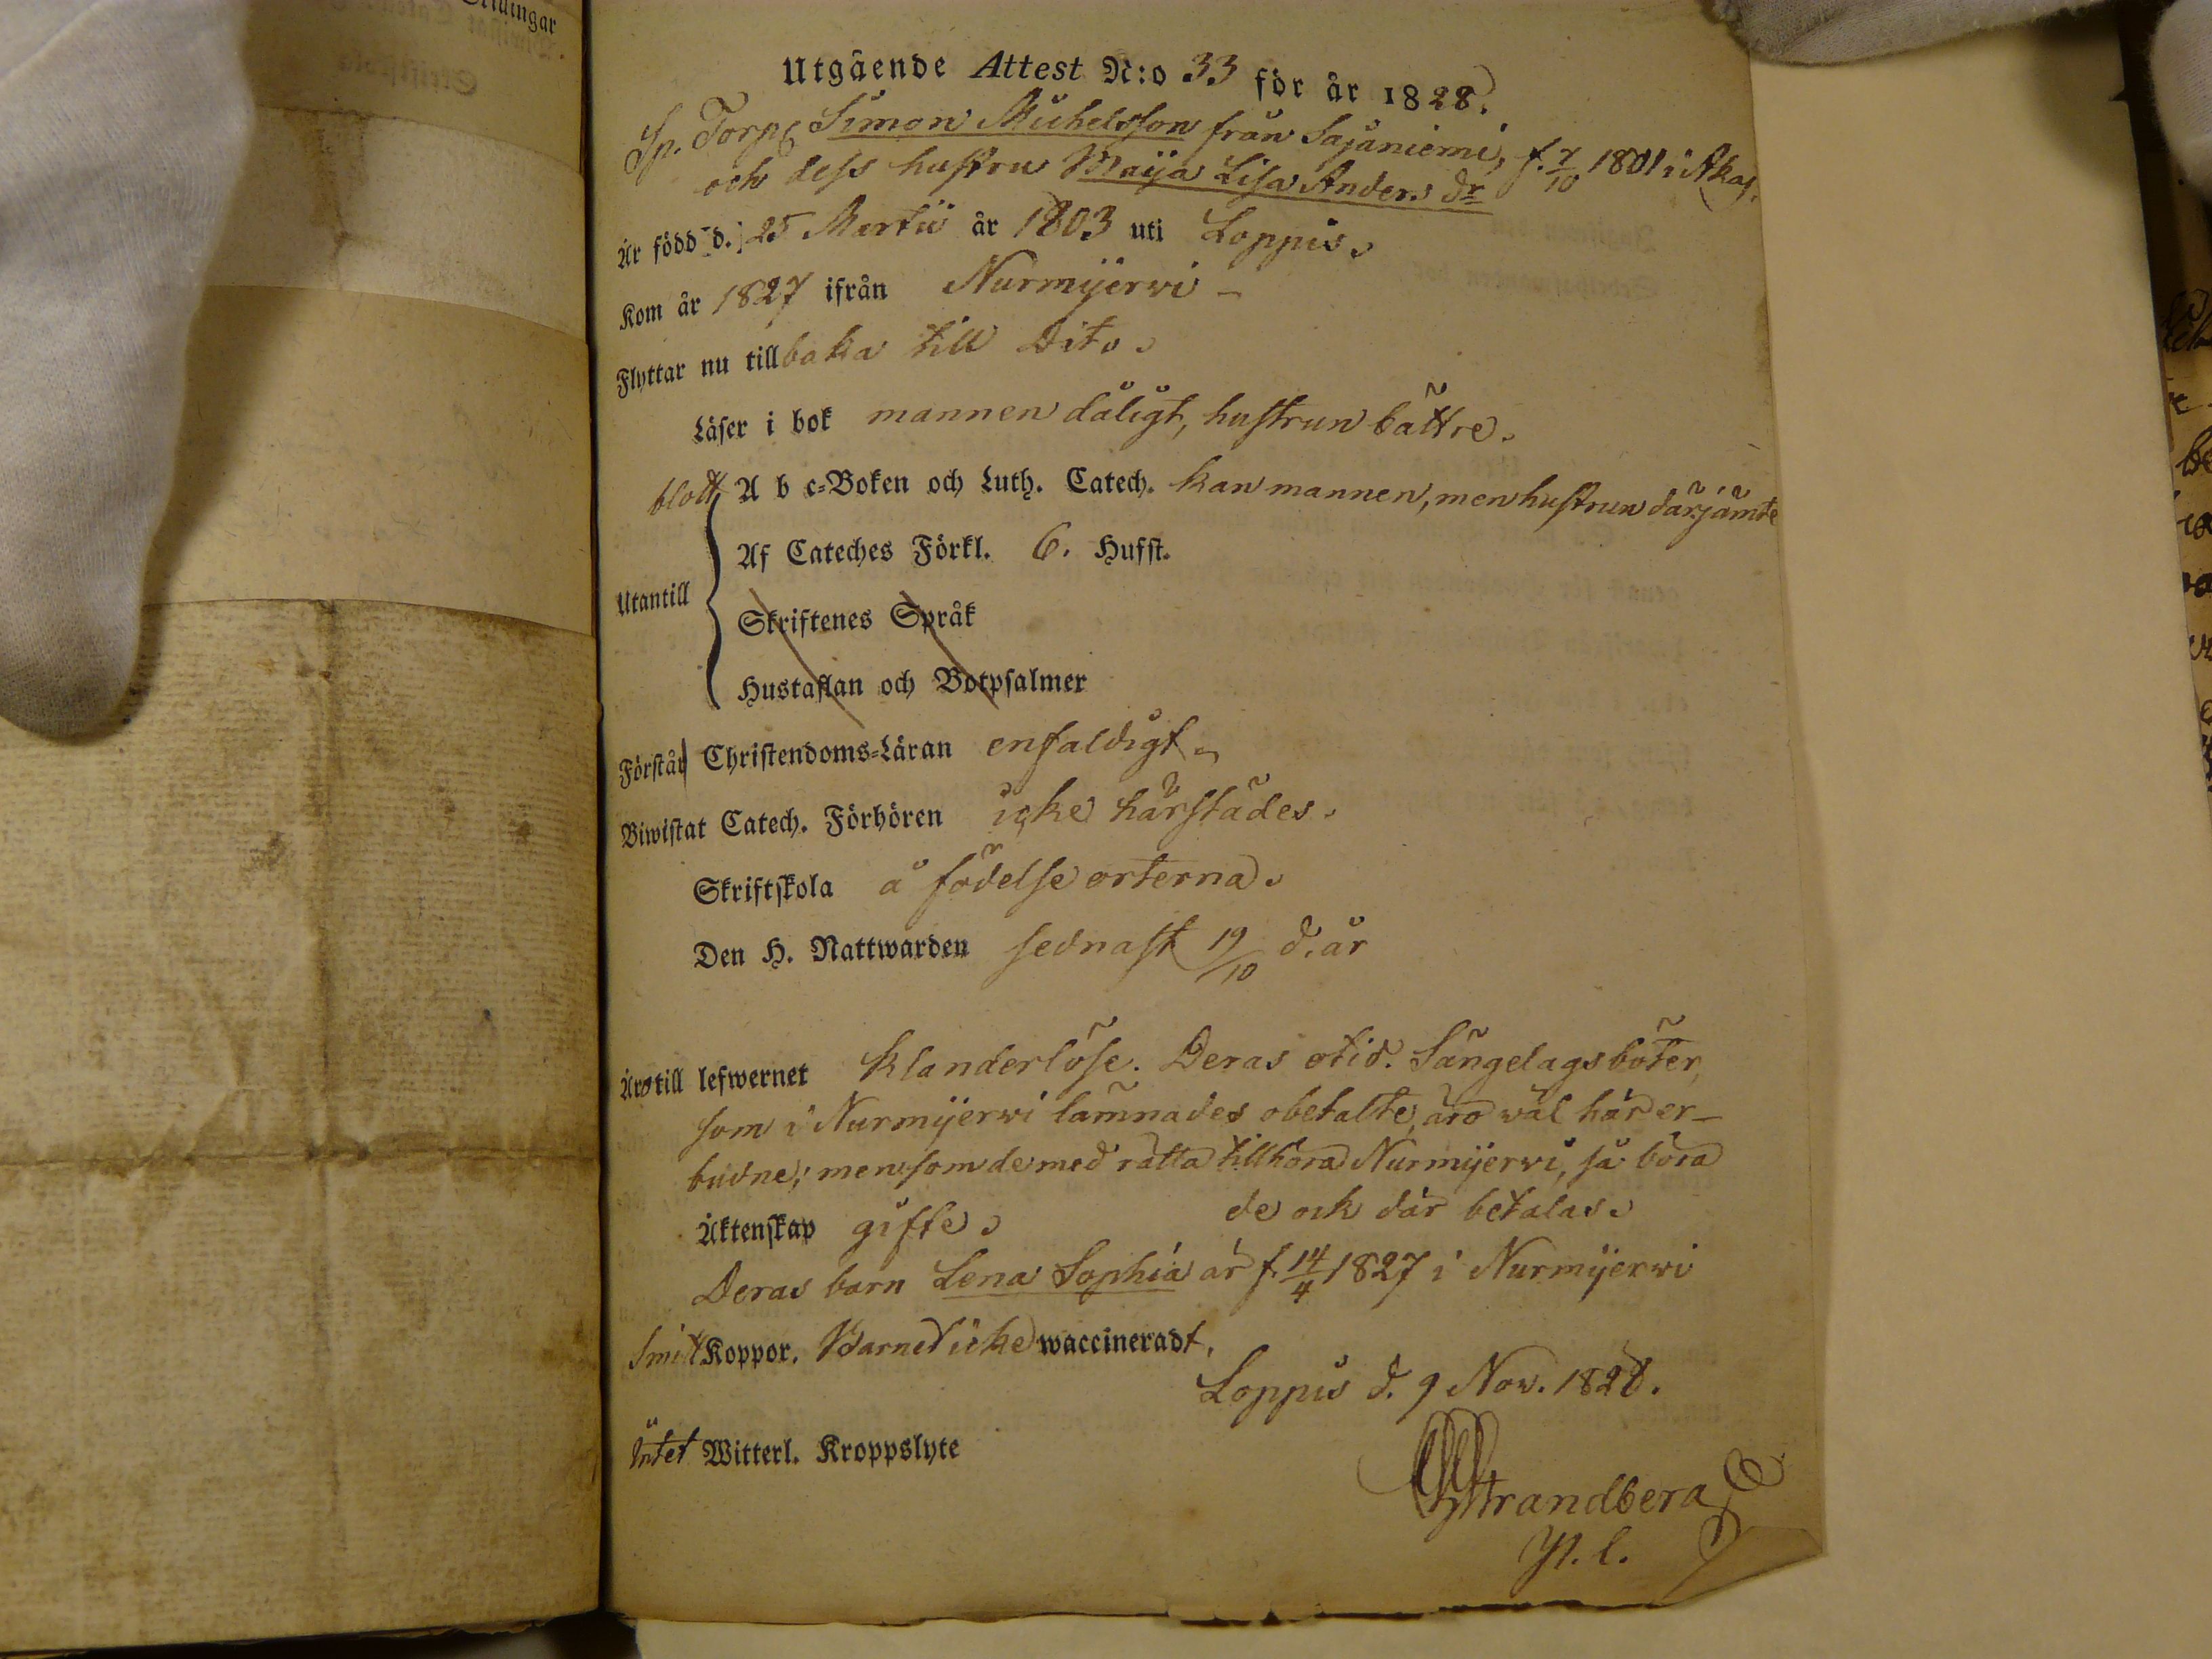 Utgående Attest N:o 33 för år 1828.
Sp. Torp. Simon Michelsson från Sajaniemi, f. 7/10 1801 i Akas.
och dess hustru Maija Lisa Anders dr
Är född d. 25 Martii år 1803 uti Loppis.
Kom år 1827 ifrån Nurmijerwi –
Flyttar nu tillbaka till Dito.
Läser i bok mannen dåligt, hustrun bättre.
blott A b c-Boken och Luth. Catech. kan mannen, men hustrun därjämte
Af Cateches Förkl. 6. Hufst.
Utantill
Skriftenes Språk
Hustaflan och Botpsalmer
Förstår Christendoms-Läran enfaldigt.
Biwistat Catech. Förhören icke härstädes.
Skriftskola å födelse orterna.
Den H. Nattwarden sednast 19/10 d. år
Äro till lefwernet klanderlöse. Deras otid. Sängelagsböter,
som i Nurmijerwi lämnades obetalte, äro wäl här er-
budne; men som de med rätta tillhöra Nurmijerwi, så böra
de ock där betalas.
Äktenskap gifte.
Deras barn Lena Sophia är f. 14/4 1827 i Nurmijerwi
Koppor. Barnet icke waccineradt.
Loppis d. 9 Nov. 1828.
Intet Witterl. Kroppslyte
Strandberg